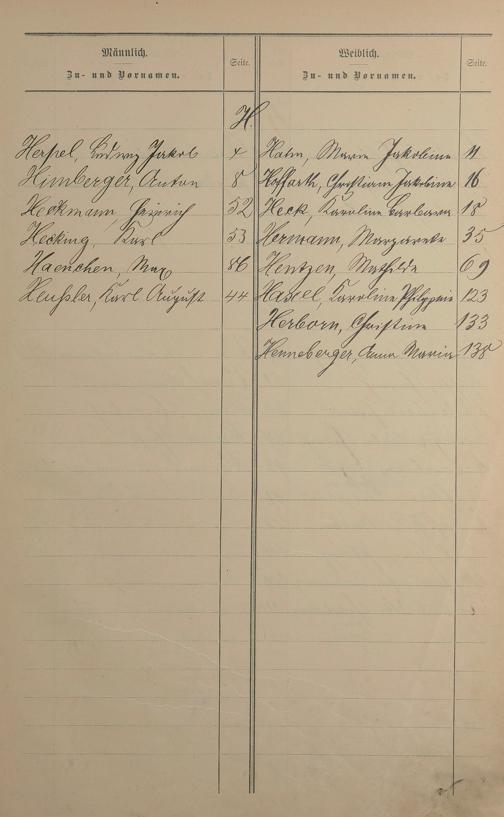 Männlich.
Zu- und Vornamen.
Seite.
Weiblich.
Zu- und Vornamen.
Seite.
H.
Herpel, Ludwig Jakob 4
Himberger, Anton 8
Heckmann, Heinrich 52
Hecking, Karl 53
Haenchen, Max 86
Heußler, Karl August 44
Hahn, Maria Jakobine 11
Hoffarth, Christiane Jakobine 16
Heck, Karoline Barbara 18
Hermann, Margarete 35
Hentzen, Mathilde 69
Hassel, Karoline Philippine 123
Herborn, Christine 133
Henneberger, Anna Maria 138